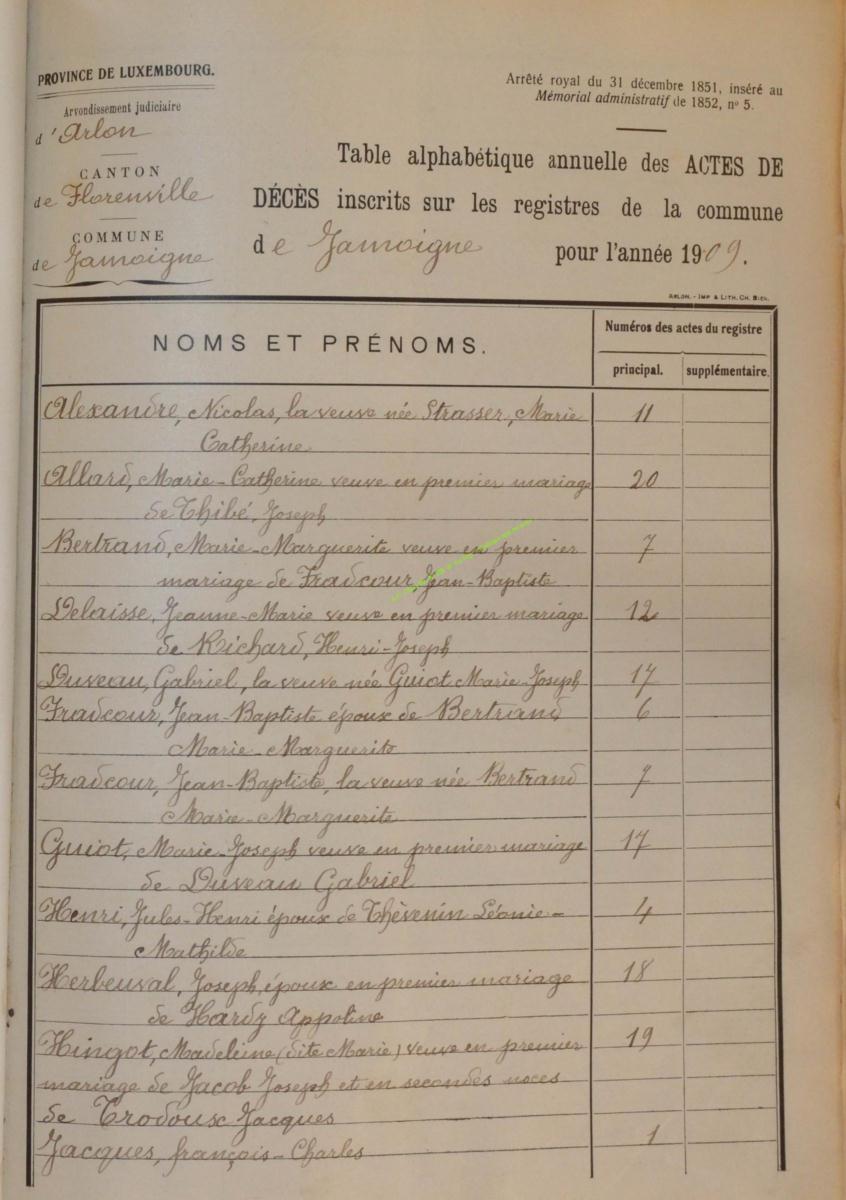 PROVINCE DE LUXEMBOURG.
Arrondissement judiciaire
d'Arlon
CANTON
de Florenville
COMMUNE
de Jamoigne
Arrêté royal du 31 décembre 1851, inséré au
Mémorial administratif de 1852, n° 5.
Table alphabétique annuelle des ACTES DE
DÉCÈS inscrits sur les registres de la commune
de Jamoigne pour l'année 1909.
ARLON. - IMP & LITH. CH. BIEN.
NOMS ET PRÉNOMS.
Numéros des actes du registre
principal. supplémentaire.
Alexandre, Nicolas, la veuve née Strasser, Marie 11
Catherine
Allard, Marie-Catherine veuve en premier mariage 20
de Thibé, Joseph
Bertrand, Marie-Marguerite veuve en premier 7
mariage de Fradcour Jean-Baptiste
Delaisse, Jeanne-Marie veuve en premier mariage 12
de Richard, Henri-Joseph
Duveau, Gabriel, la veuve née Guiot Marie-Joseph 17
Fradcour, Jean-Baptiste époux de Bertrand 6
Marie-Marguerite
Fradcour, Jean-Baptiste, la veuve née Bertrand 7
Marie-Marguerite
Guiot, Marie-Joseph veuve en premier mariage 17
de Duveau Gabriel
Henri, Jules-Henri époux de Thèvenin Léonie- 4
Mathilde
Herbeuval, Joseph, époux en premier mariage 18
de Hardy Appoline
Hingot, Madeleine (dite Marie) veuve en premier 19
mariage de Jacob Joseph et en secondes noces
de Trodoux Jacques
Jacques, françois-Charles 1